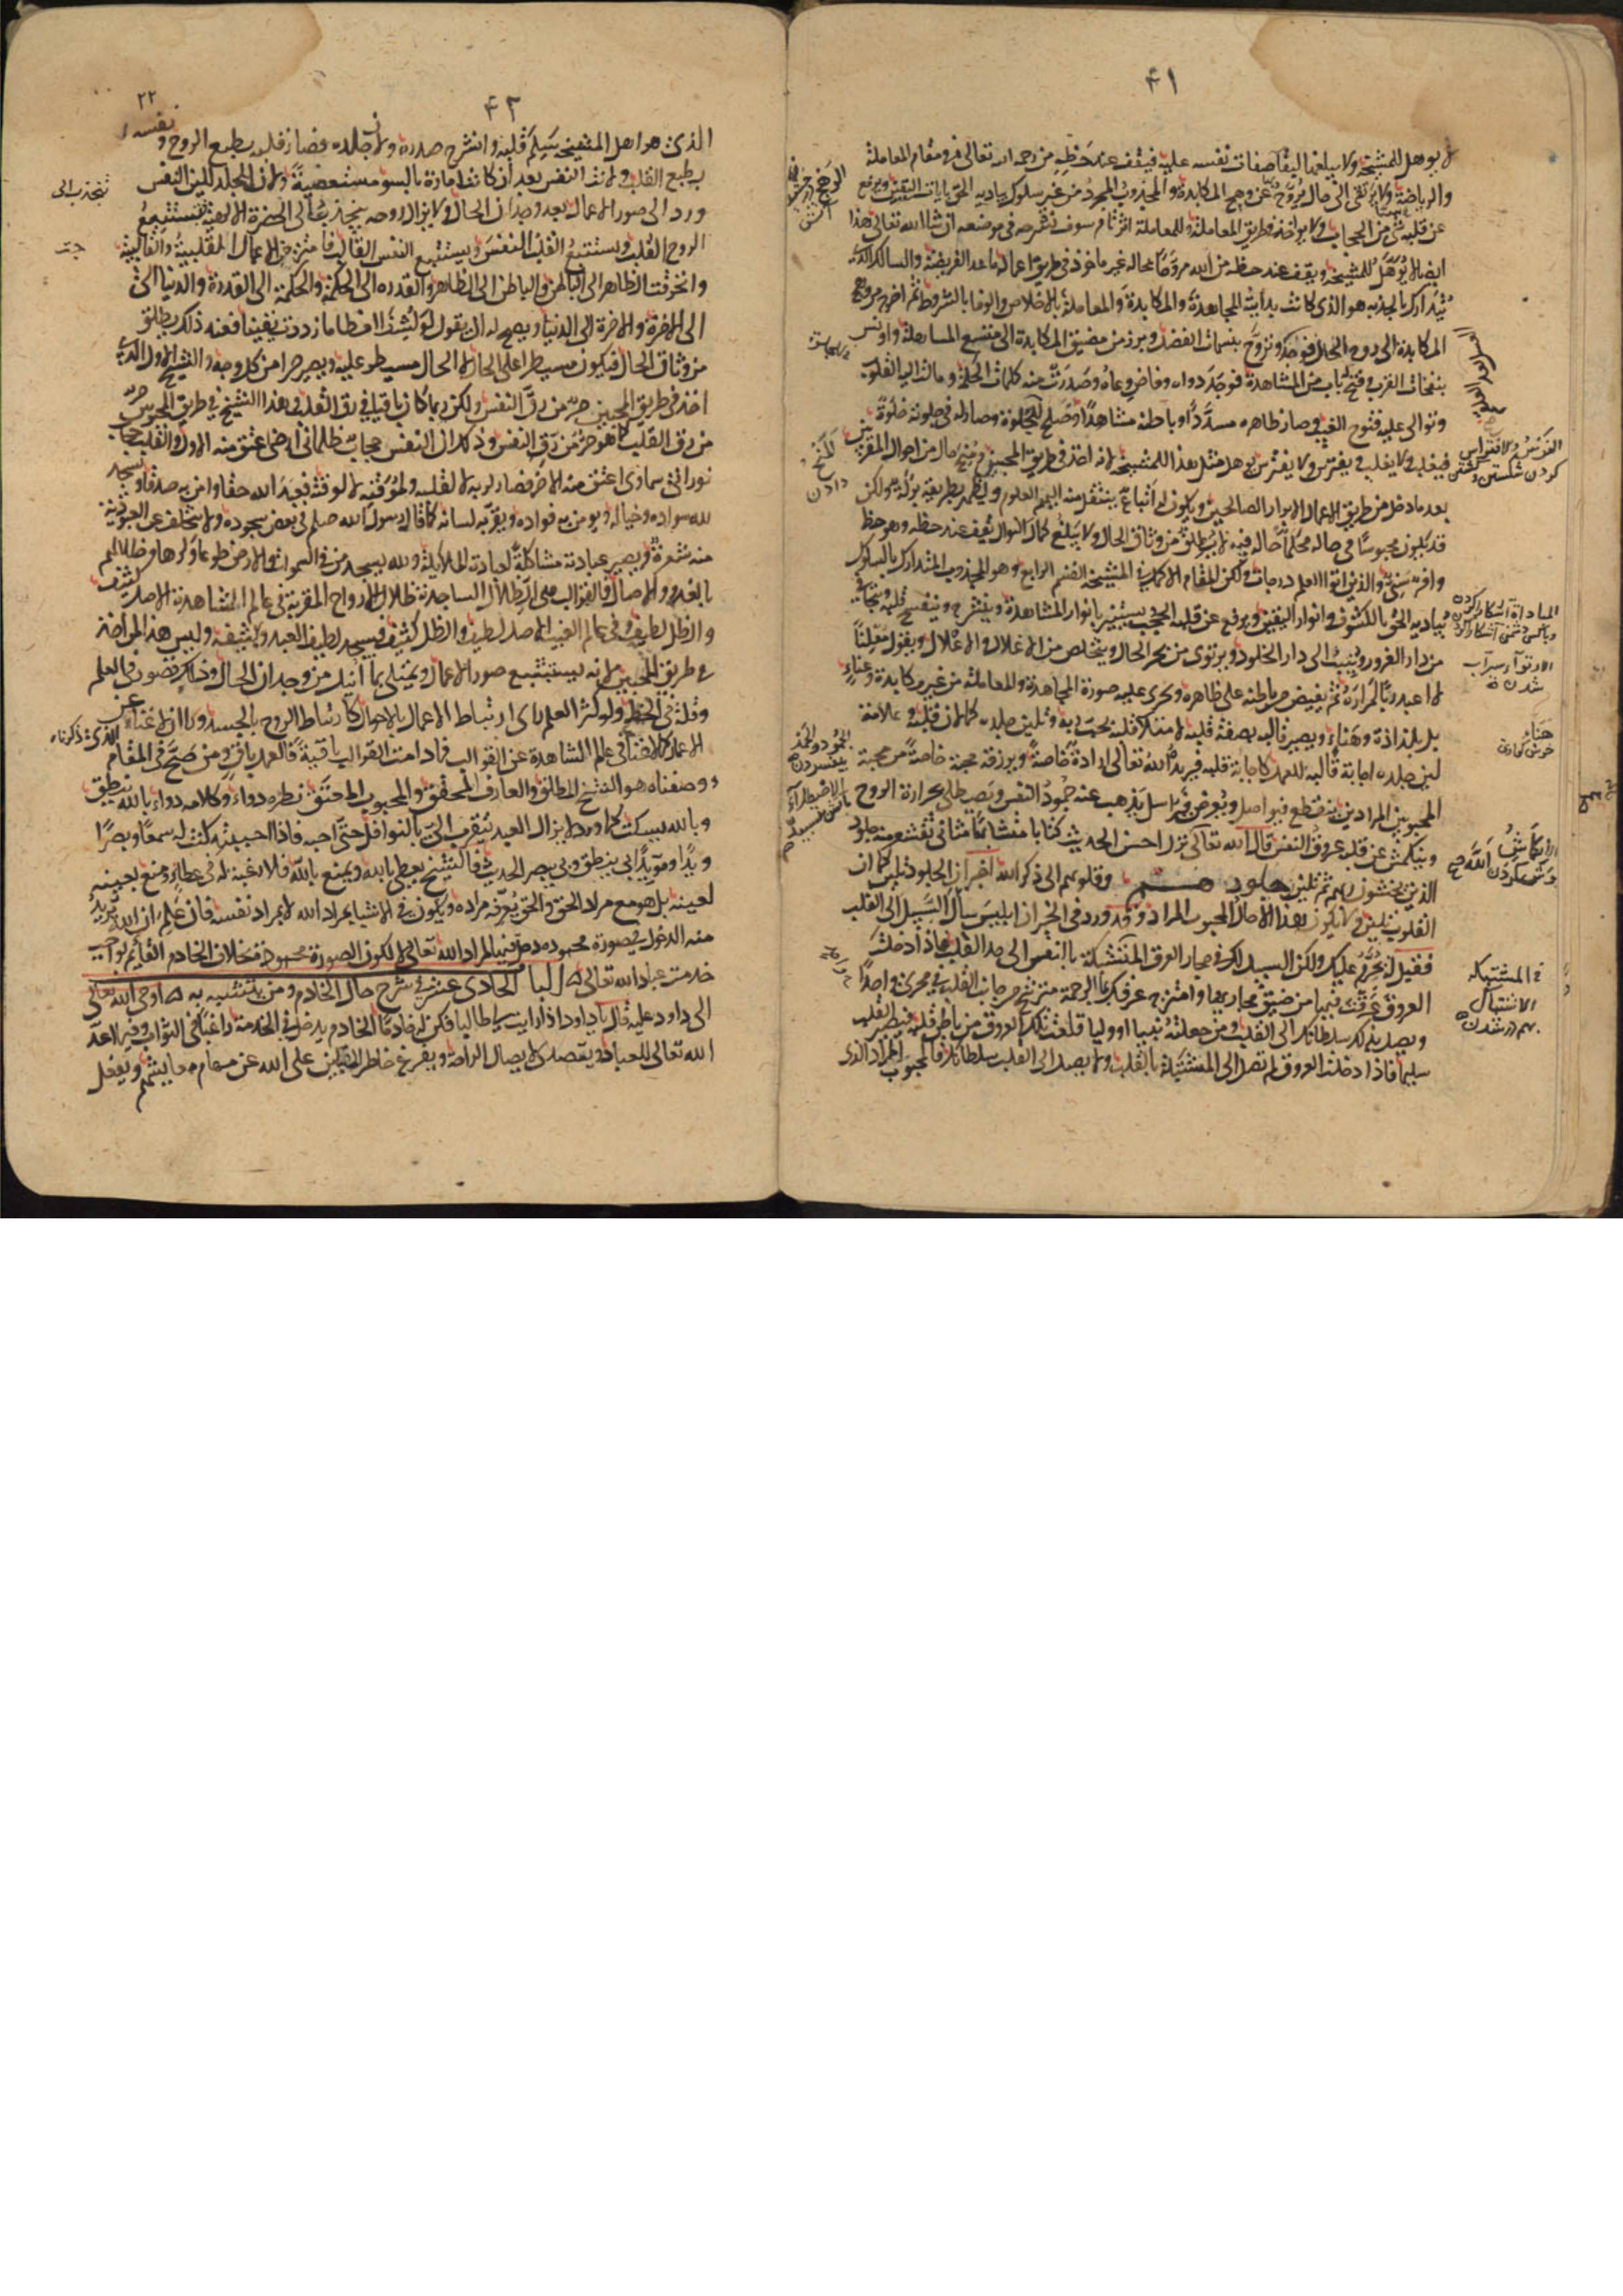 ۴۱
لا يوهل للمشيخة ولا يبلغها لبقا صفات نفسه عليه فيقف عند حظه من رحمة الله تعالى في مقام المعاملة
والرياضة ولا يرتقى الى حال يروح بها عن وهج المكابدة والمجذوب المجرد من غير سلوك يباديه الحق بايات اليقين ويرفع
عن قلبه شيئا من الحجاب ولا يؤاخذ في طريق المعاملة وللمعاملة اثر تام سوف نشرحه في موضعه ان شا الله تعالى وهذا
ايضا لا يؤهل للمشيخة ويقف عند حظه من الله مروحا بحاله غير ماخوذ في طريق اعماله ما عدا الفريضة والسالك الذى
تدارك بالجذبة هو الذى كانت بدايته المجاهدة والمكابدة والمعاملة بالاخلاص والوفا بالشروط ثم اخرج من وهج
المكابدة الى روح الحال فوجد وتروح بنسمات الفضل وبرز من مضيق المكابدة الى متسع المساهلة واونس
بنفحات القرب وفتح له باب من المشاهدة فوجد دواه وفاض وعاه وصدرت منه كلمات الحكمة ومالت اليه القلوب
وتوالى عليه فتوح الغيب وصار ظاهره مسددا وباطنه مشاهدا وصلح للجلوة وصار له في جلوته خلوة
فيغلب ولا يغلب ويفترس ولا يفترس يوهل مثل هذا للمشيخة لانه اخذ في طريق المحبين ومنح حالا من احوال المقربين
بعد ما دخل من طريق اعمال الابرار الصالحين ويكون له اتباع ينتقل منه اليهم العلوم ويظهر بطريقه بركة ولكن
قد يكون محبوسا في حاله محكما حاله فيه لا يطلق من وثاق الحال ولا يبلغ كمال النوال يقف عند حظه وهو حظ
وافر سنى والذين اوتوا العلم درجات ولكن المقام الاكمل في المشيخة القسم الرابع وهو المجذوب المتدارك بالسلوك
يباديه الحق بالكشوف وانوار اليقين ويرفع عن قلبه الحجب ويستنير بانوار المشاهدة وينشرح وينفسح قلبه ويتجافى
من دار الغرور وينيب الى دار الخلود ويرتوى من بحر الحال ويتخلص من الاغلال والاعلال ويقول معلنا
لا اعبد ربا لم اره ثم يفيض من باطنه على ظاهره وتجرى عليه صورة المجاهدة والمعاملة من غير مكابدة وعناء
بل بلذاذة وهناء ويصير قالبه بصفة قلبه لامتلا قلبه بحب ربه وتلين جلده كما لان قلبه وعلامة
لين جلده اجابة قالبه للعمل كاجابة قلبه فيريده الله تعالى ارادة خاصة ويرزقه محبة خاصة من محبة
المحبوبين المرادين ينقطع فيواصل ويعرض فيراسل يذهب عنه جمود النفس ويصطلى بحرارة الروح
وينكمش عن قلبه عروق النفس قال الله تعالى نزل احسن الحديث كتابا متشابها مثاني تقشعر منه جلود
الذين يخشون ربهم ثم تلين جلودهم وقلوبهم الى ذكر الله اخبر ان الجلود تلين كما ان
القلوب تلين ولا يكون هذا الا حال المحبوب المراد وقد ورد في الخبر ان ابليس سال السبيل الى القلب
فقيل له يحرم عليك ولكن السبيل لك في مجارى العروق المشتبكة بالنفس الى حد القلب فاذا دخلت
العروق عرقت فيها من ضيق مجاريها وامتزج عرقك بماء الرحمة مترشح من جانب القلب في مجرى واحد
ويصل بذلك سلطانك الى القلب ومن جعلته نبيا او وليا قلعت تلك العروق من باطن قلبه فيصير القلب
سليما فاذا دخلت العروق لم تصل الى المشتبكة بالقلب ولا يصل الى القلب سلطانك فالمحبوب المراد الذى
المباداة آشكارا كردن
الارتوا سيراب شدن
هناء
في المشتبكة
الاشتباك
بهم در شدن
۴۲
۲۲
الذى هو اهل المشيخة سلم قلبه وانشرح صدره ولان جلده فصار قلبه بطبع الروح ونفسه
بطبع القلب ولانت النفس بعد ان كانت امارة بالسو مستعصية ولان الجلد للين النفس
ورد الى صور الاعمال بعد وجدان الحال ولا يزال روحه ينجذب الى الحضرة الالهية فيستتبع
الروح القلب ويستتبع القلب النفس ويستتبع النفس القالب فامتزجت الاعمال القلبية والقالبية
وانخرق الظاهر الى الباطن والباطن الى الظاهر والقدرة الى الحكمة والحكمة الى القدرة والدنيا الى
الى الاخرة والاخرة الى الدنيا ويصح له ان يقول لو كشف الغطا ما ازددت يقينا فعند ذلك يطلق
من وثاق الحال فيكون مسيطرا على الحال لا الحال مسيطر عليه ويصير حرا من كل وجه والشيخ الاول الذى
اخذ في طريق المحبين حر من رق النفس ولكن ربما كان باقيا في رق القلب وهذا الشيخ في طريق المحبوبين حر
من رق القلب كما هو حر من رق النفس وذلك ان النفس حجاب ظلماني ارضى اعتق منه الاول والقلب حجاب
نوراني سماوى اعتق منه الاخر فصار لربه لا لقلبه ولموقته لا لوقته فعبد الله حقا وامن به صدقا ويسجد
لله سواده وخياله ويؤمن به فؤاده ويقر به لسانه كما قال رسول الله صلعم في بعض سجوده ولا يتخلف عن العبودية
منه شعرة ويصير عبادته مشاكلة لعبادة الملائكة ولله يسجد من في السموات والارض طوعا وكرها وظلالهم
بالغدو والاصال فالقوالب هى الظلال الساجدة ظلال الارواح المقربة في عالم الشهادة الاصل كثيف
والظل لطيف وفي عالم الغيب الاصل لطيف والظل كثيف فيسجد لطيف العبد وكثيفه وليس هذا لمن اخذ
في طريق المحبين لانه يستتبع صور الاعمال ويمتلى بما انيل من وجدان الحال وذاك قصور في العلم
وقلة في الحظ ولو كثر العلم راى ارتباط الاعمال بالاحوال كارتباط الروح بالجسد ورأى ان لا غناء عن
الاعمال كما لا غنا في عالم الشهادة عن القوالب فما دامت القوالب باقية فالعمل باق ومن صح في المقام الذى ذكرناه
ووصفناه هو الشيخ المطلق والعارف المحقق والمحبوب المعتق نظره دواء وكلامه دواء بالله ينطق
وبالله يسكت كما ورد لا يزال العبد يتقرب الى بالنوافل حتى احبه فاذا احببته كنت له سمعا وبصرا
ويدا ومؤيدا بى ينطق وبى يبصر الحديث فالشيخ يعطى بالله ويمنع بالله فلا رغبة له في عطاء ومنع بعينه
لعينه بل هو مع مراد الحق والحق يعرفه مراده ويكون في الاشيا بمراد الله لا بمراد نفسه فان علم ان الله يريد
منه الدخول في صورة محمودة دخل فيها لمراد الله تعالى لا لكون الصورة محمودة بخلاف الخادم القايم بواجب
خدمت عباد الله تعالى الباب الحادى عشر في شرح حال الخادم ومن يتشبه به اوحى الله تعالى
الى داود عليه قال يا داود اذا رايت لى طالبا فكن له خادما الخادم يدخل في الخدمة راغبا في الثواب وفيما اعد
الله تعالى للعباد ويتصدى لايصال الراحة ويفرغ خاطر المقبلين على الله عن مهام معايشهم ويفعل